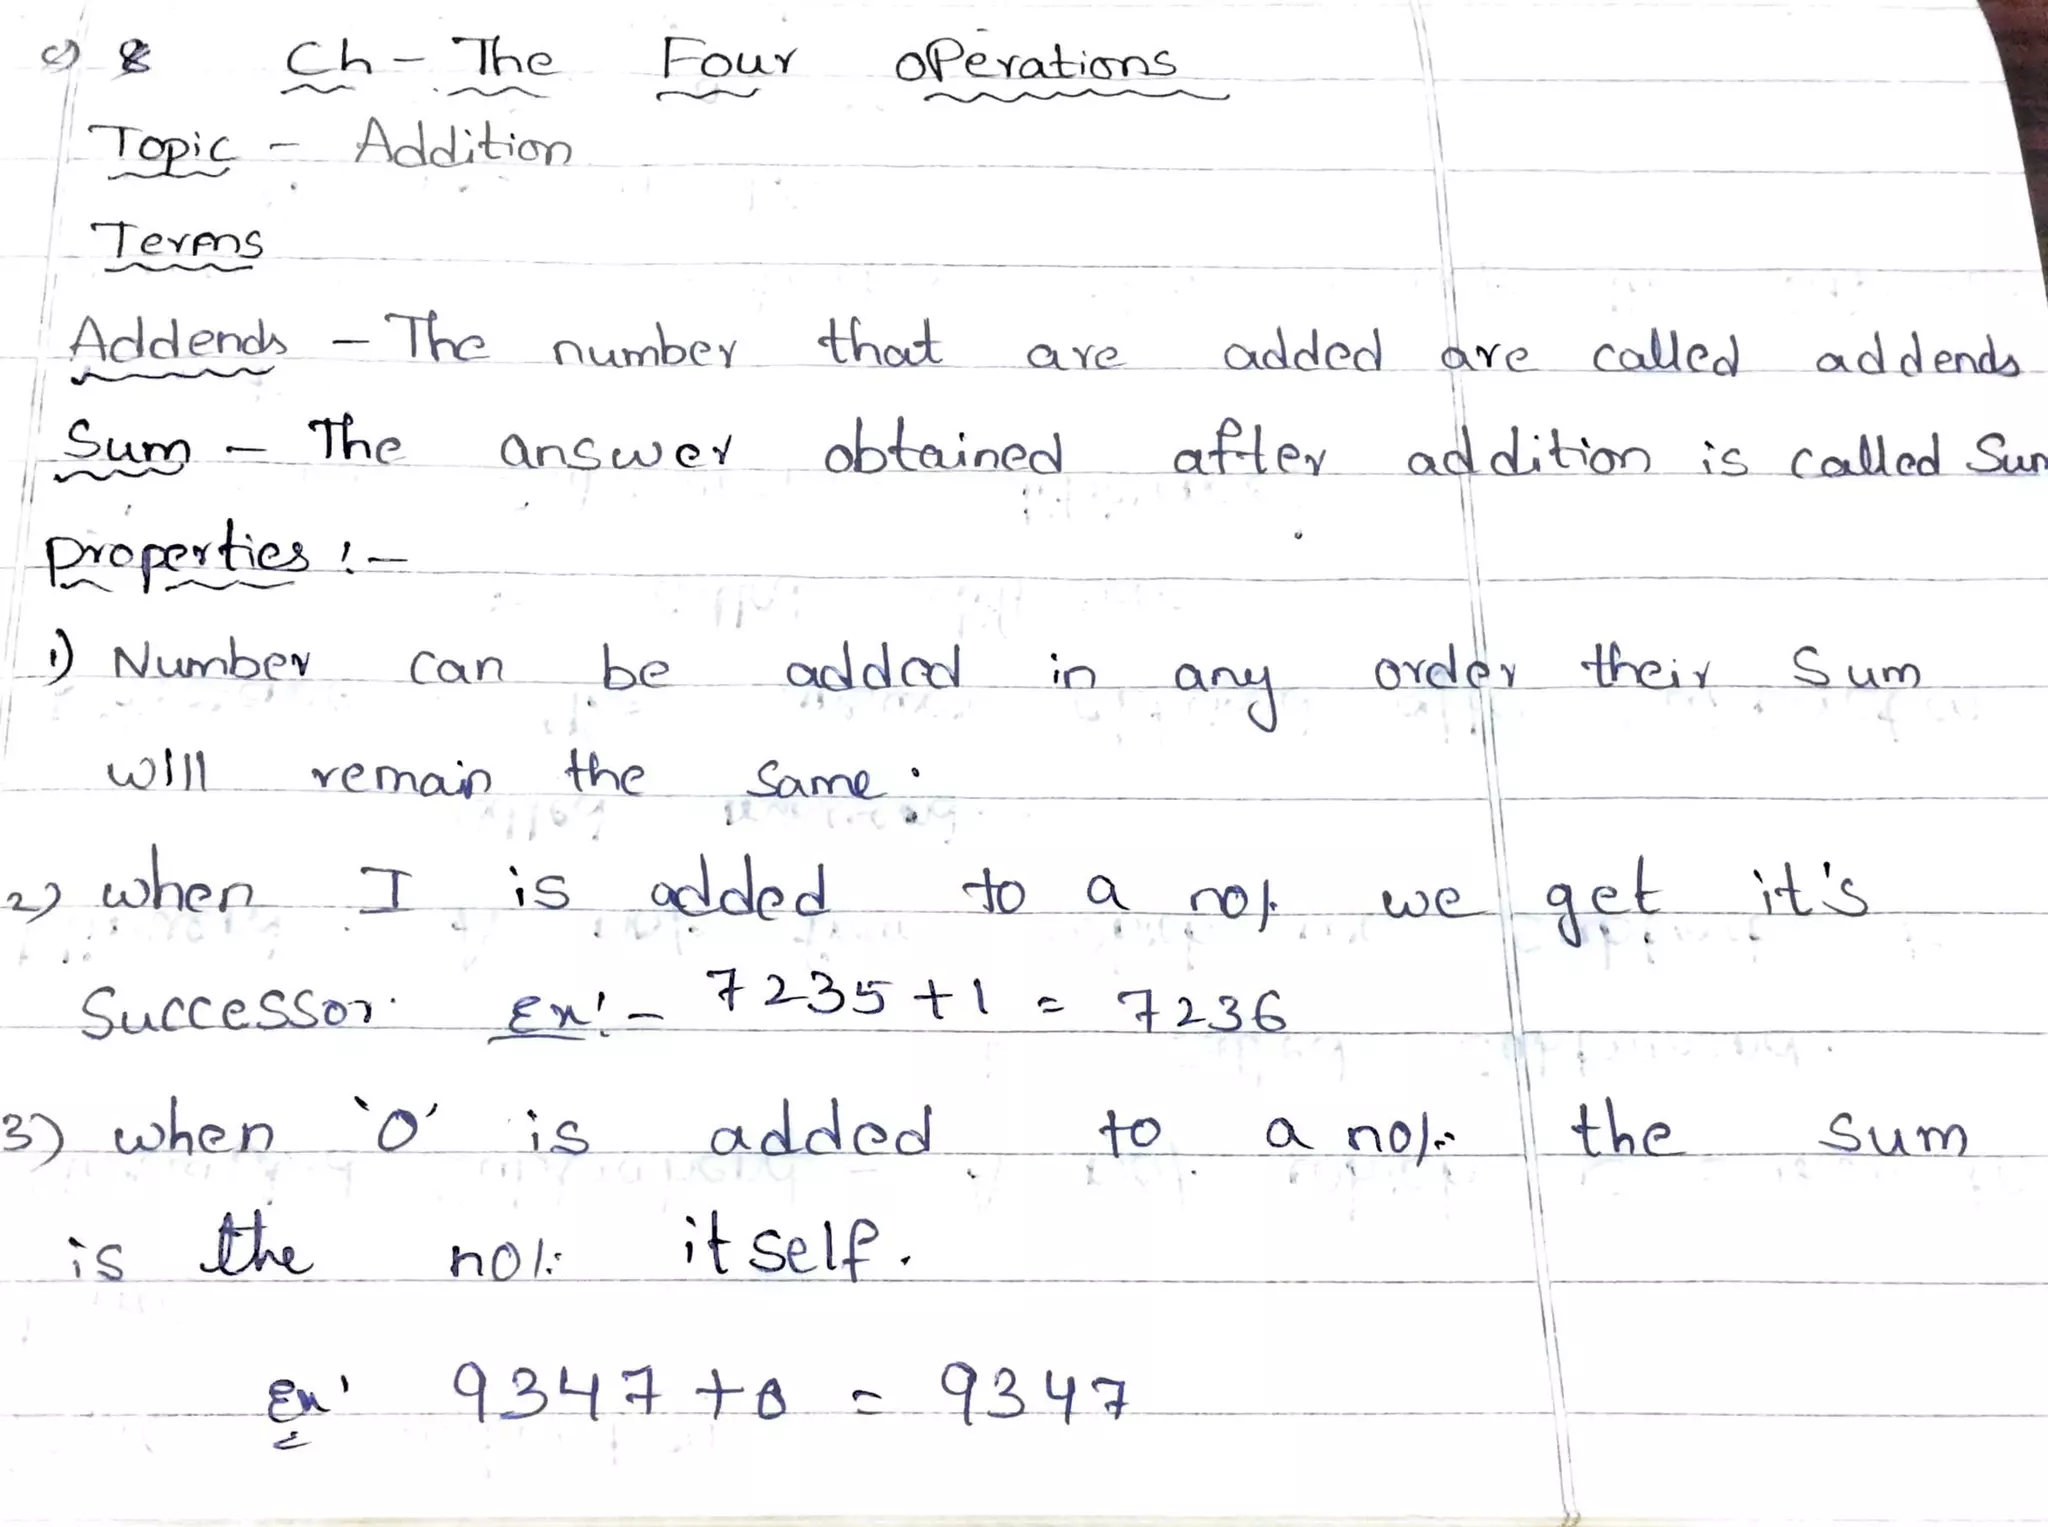 Ch - The Four operations
Topic - Addition
Terms
Addends - The number that are added are called addends
Sum - The answer obtained after addition is called Sum
properties :-
1) Number can be added in any order their Sum
will remain the same.
2) when I is added to a no/. we get it's
Successor. Ex:- 7235 + 1 = 7236
3) when '0' is added to a no/. the sum
is the no/. itself.
Ex: 9347 + 0 = 9347